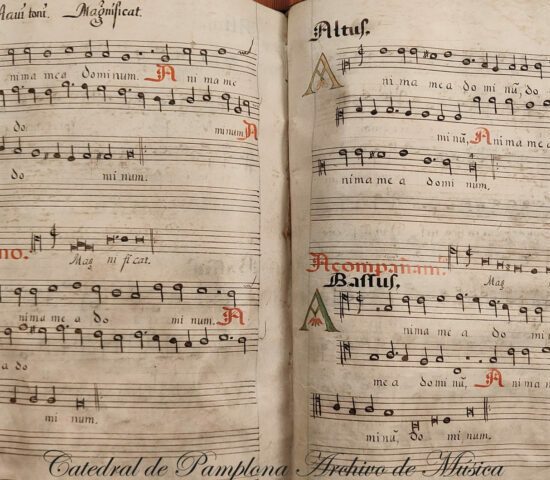 toni. Magnificat.
nima mea dominum. A nima me
do minum A
do minum.
no. Mag ni ficat.
nima me a do mi num. A
a do
mi num.
Altus.
A ni ma me a do mi nū, do
mi nū, A nima me a
nima me a domi num.
Acompañam. Mag
Bassus.
A nima me a do mi
me a do mi nū, A nima n
mi nū, do mi num.
Catedral de Pamplona Archivo de Música